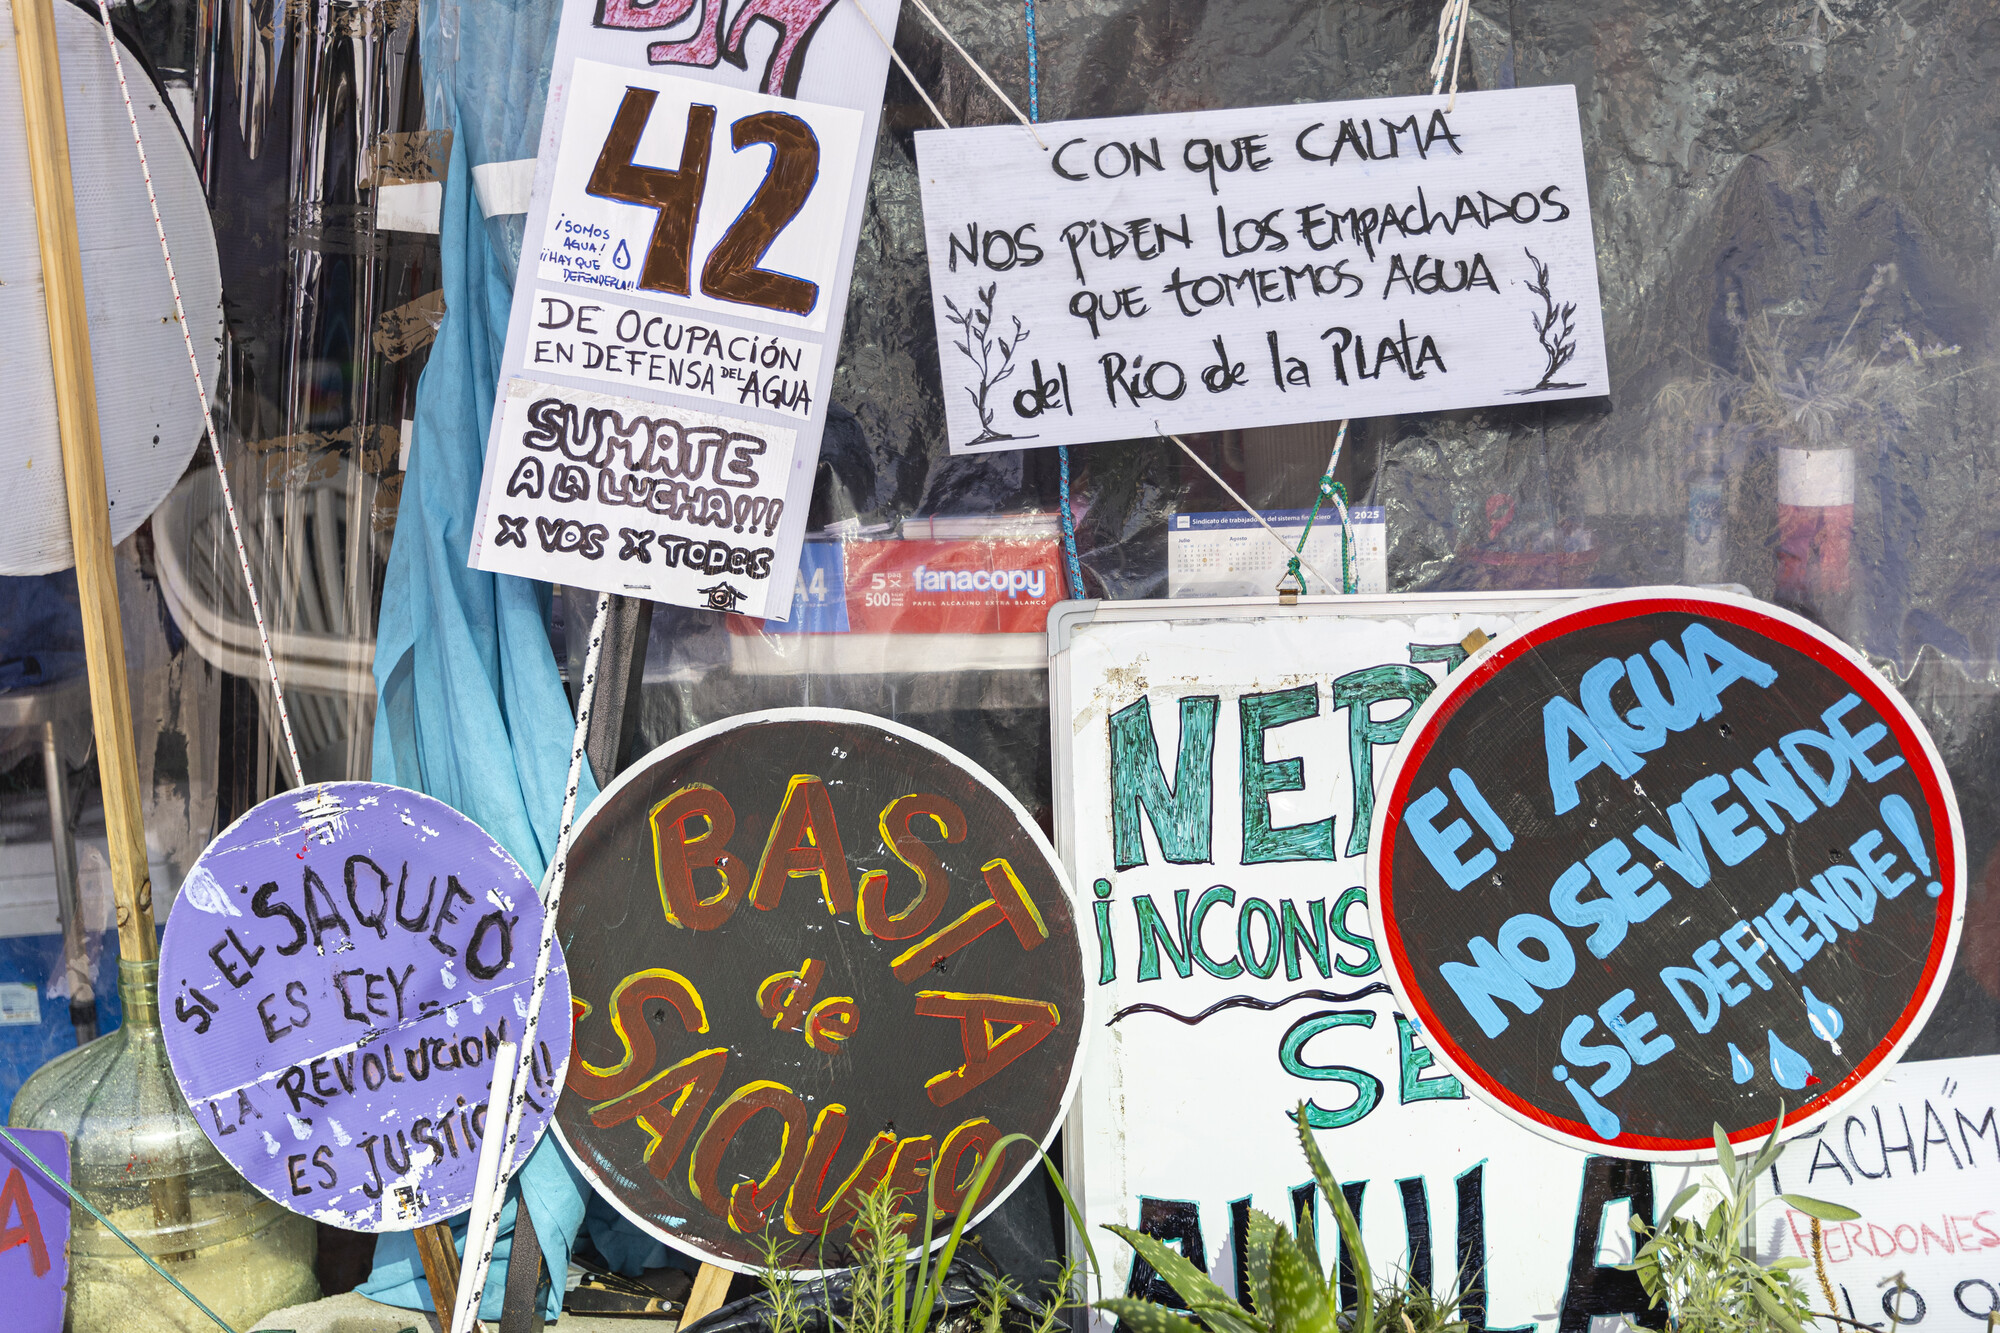 DIA
42
¡SOMOS
AGUA!
¡¡HAY QUE
DEFENDERLA!!
DE OCUPACIÓN
EN DEFENSA DEL AGUA
SUMATE
A LA LUCHA!!!
X VOS X TODOS
CON QUE CALMA
NOS PIDEN LOS EMPACHADOS
QUE TOMEMOS AGUA
del Río de la PLATA
A4
5 x
500
fanacopy
PAPEL ALCALINO EXTRA BLANCO
Sindicato de trabajadores del sistema financiero 2025
Julio Agosto
SI EL SAQUEO
ES LEY_
LA REVOLUCION
ES JUSTICIA!!
BASTA
de
SAQUEO
A
NEPT
INCONS
SE
ANULA
El AGUA
NO SE VENDE
¡SE DEFIENDE!
PERDONES
LO Q
A